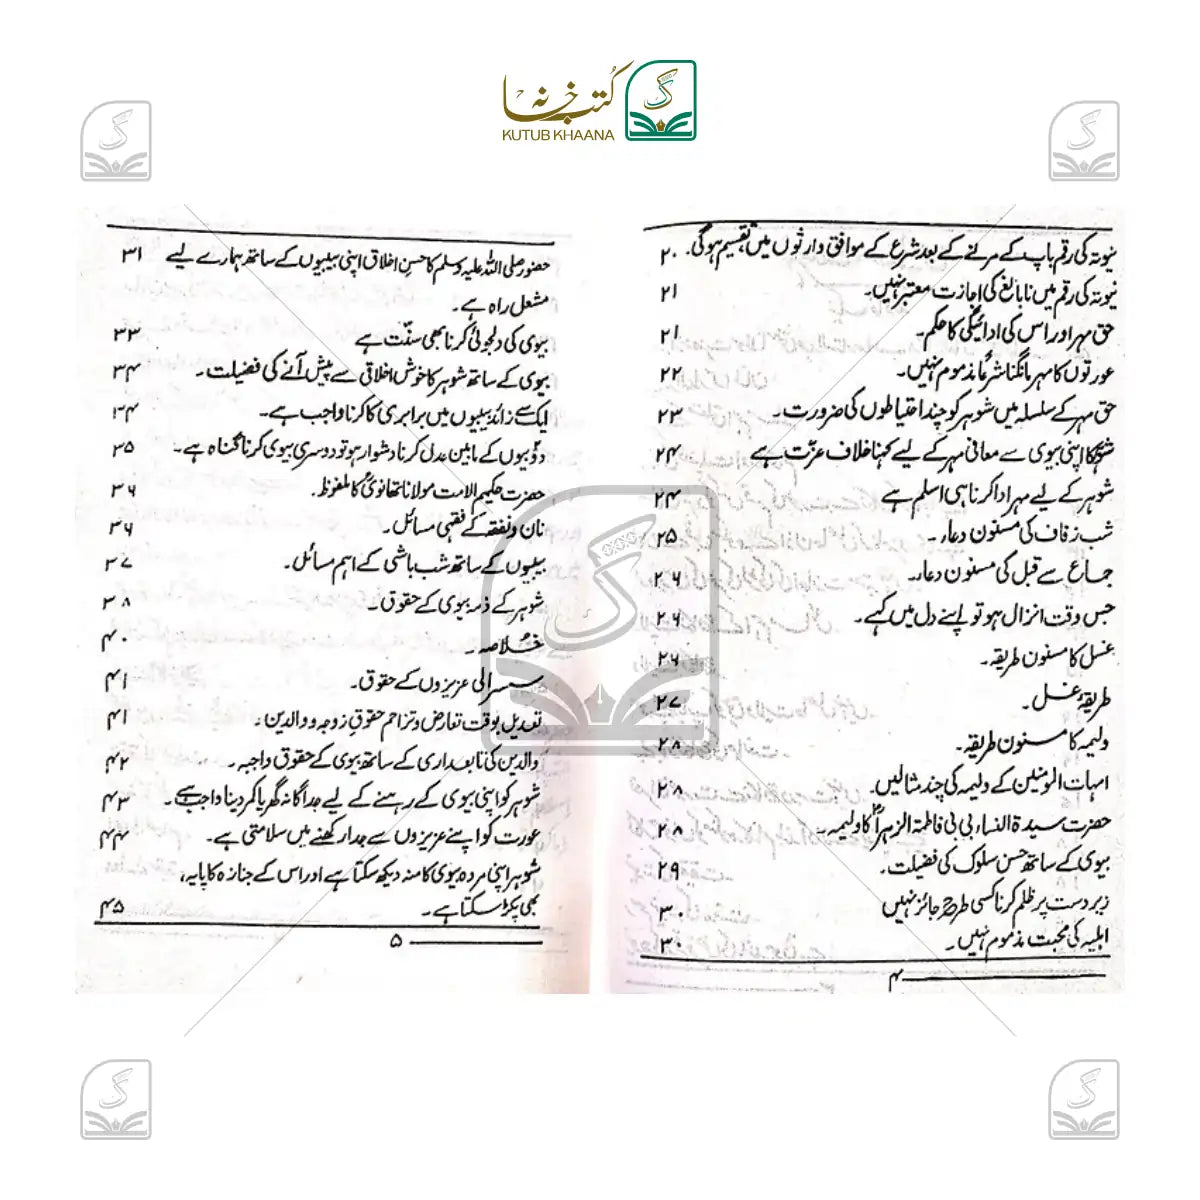 کتب خانہ
KUTUB KHAANA
نیوتہ کی رقم باپ کے مرنے کے بعد شرع کے موافق وارثوں میں تقسیم ہوگی۔ ۲۰
نیوتہ کی رقم میں نابالغ کی اجازت معتبر نہیں۔ ۲۱
حق مہر اور اس کی ادائیگی کا حکم۔ ۲۱
عورتوں کا مہر مانگنا شرعاً مذموم نہیں۔ ۲۲
حق مہر کے سلسلہ میں شوہر کو چند احتیاطوں کی ضرورت۔ ۲۳
شوہر کا اپنی بیوی سے معافی مہر کے لیے کہنا خلاف عزت ہے ۲۴
شوہر کے لیے مہر ادا کرنا ہی اسلم ہے ۲۴
شب زفاف کی مسنون دعاء۔ ۲۵
جماع سے قبل کی مسنون دعاء۔ ۲۶
جس وقت انزال ہو تو اپنے دل میں کہے۔ ۲۶
غسل کا مسنون طریقہ۔ ۲۶
طریقۂ غسل۔ ۲۷
ولیمہ کا مسنون طریقہ۔ ۲۸
امہات المومنین کے ولیمہ کی چند مثالیں۔ ۲۸
حضرت سیدۃ النساء بی بی فاطمۃ الزہراؓ کا ولیمہ۔ ۲۸
بیوی کے ساتھ حسن سلوک کی فضیلت۔ ۲۹
زبردست پر ظلم کرنا کسی طرح جائز نہیں ۳۰
اہلیہ کی محبت مذموم نہیں۔ ۳۰
۴
حضور صلی اللہ علیہ وسلم کا حسن اخلاق اپنی بیبیوں کے ساتھ ہمارے لیے ۳۱
مشعل راہ ہے۔
بیوی کی دلجوئی کرنا بھی سنّت ہے ۳۳
بیوی کے ساتھ شوہر کا خوش اخلاقی سے پیش آنے کی فضیلت۔ ۳۴
ایک سے زائد بیبیوں میں برابری کا کرنا واجب ہے۔ ۳۴
دو بیویوں کے مابین عدل کرنا دشوار ہو تو دوسری بیوی کرنا گناہ ہے۔ ۳۵
حضرت حکیم الامت مولانا تھانویؒ کا ملفوظ۔ ۳۶
نان و نفقہ کے فقہی مسائل۔ ۳۶
بیبیوں کے ساتھ شب باشی کے اہم مسائل۔ ۳۷
شوہر کے ذمہ بیوی کے حقوق۔ ۳۸
خلاصہ۔ ۴۰
سسرالی عزیزوں کے حقوق۔ ۴۱
تعدیل بوقت تعارض و تزاحم حقوقِ زوجہ و والدین۔ ۴۱
والدین کی تابعداری کے ساتھ بیوی کے حقوق واجبہ۔ ۴۲
شوہر کو اپنی بیوی کے رہنے کے لیے جداگانہ گھر یا کمر دینا واجب ہے۔ ۴۳
عورت کو اپنے عزیزوں سے جدا رکھنے میں سلامتی ہے۔ ۴۴
شوہر اپنی مردہ بیوی کا منہ دیکھ سکتا ہے اور اس کے جنازہ کا پایہ،
بھی پکڑ سکتا ہے۔ ۴۵
۵